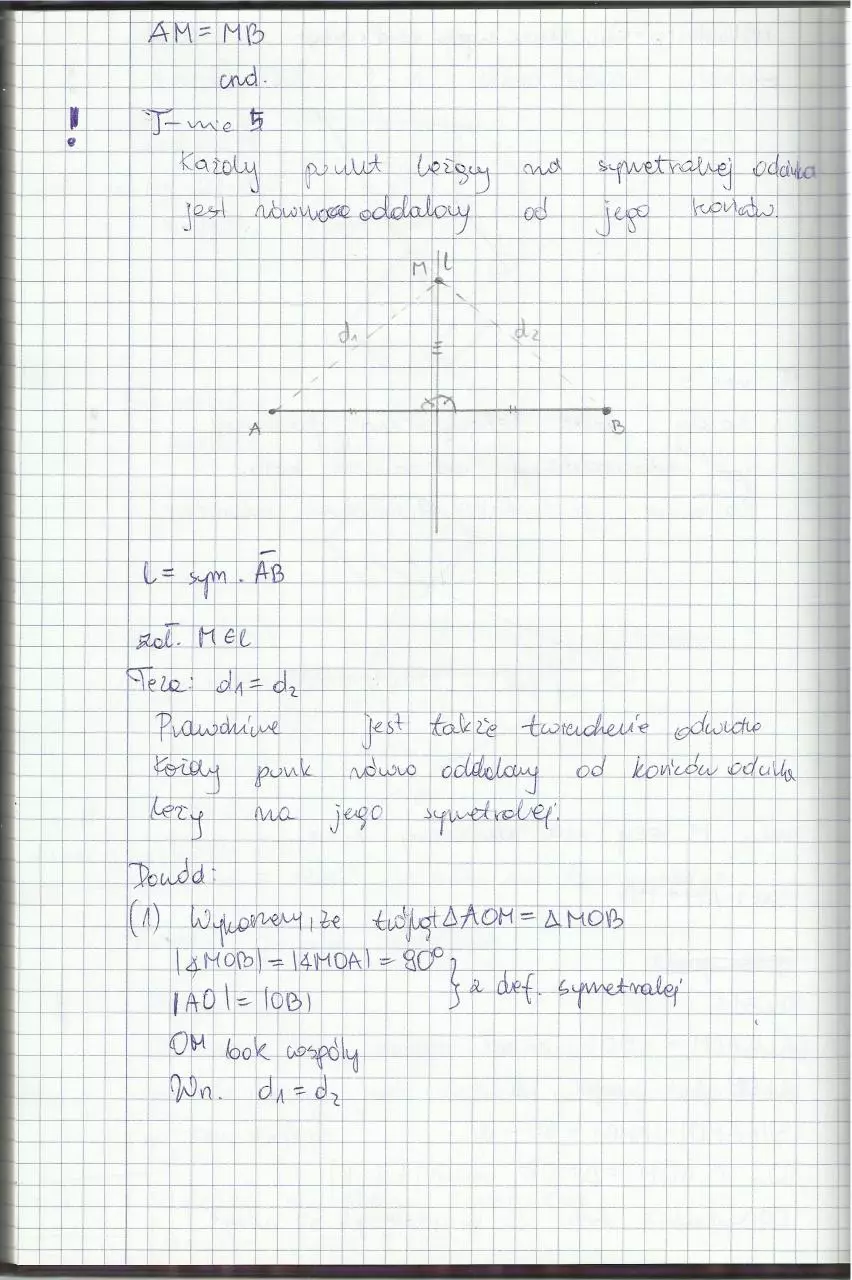 AM = MB
cnd.
! T-nie 5
Każdy punkt leżący na symetralnej odcinka
jest równo oddalony od jego końców.
M l
d₁ d₂
A B
l = sym. AB
zał. M ∈ l
Teza: d₁ = d₂
Prawdziwe jest także twierdzenie odwrotne
Każdy punk równo oddalony od końców odcinka
leży na jego symetralnej.
Dowód:
(1) Wykażemy, że trójkąt ΔAOM = ΔMOB
|∢MOB| = |∢MOA| = 90°
|AO| = |OB| } z def. symetralej
OM bok wspóly
Wn. d₁ = d₂